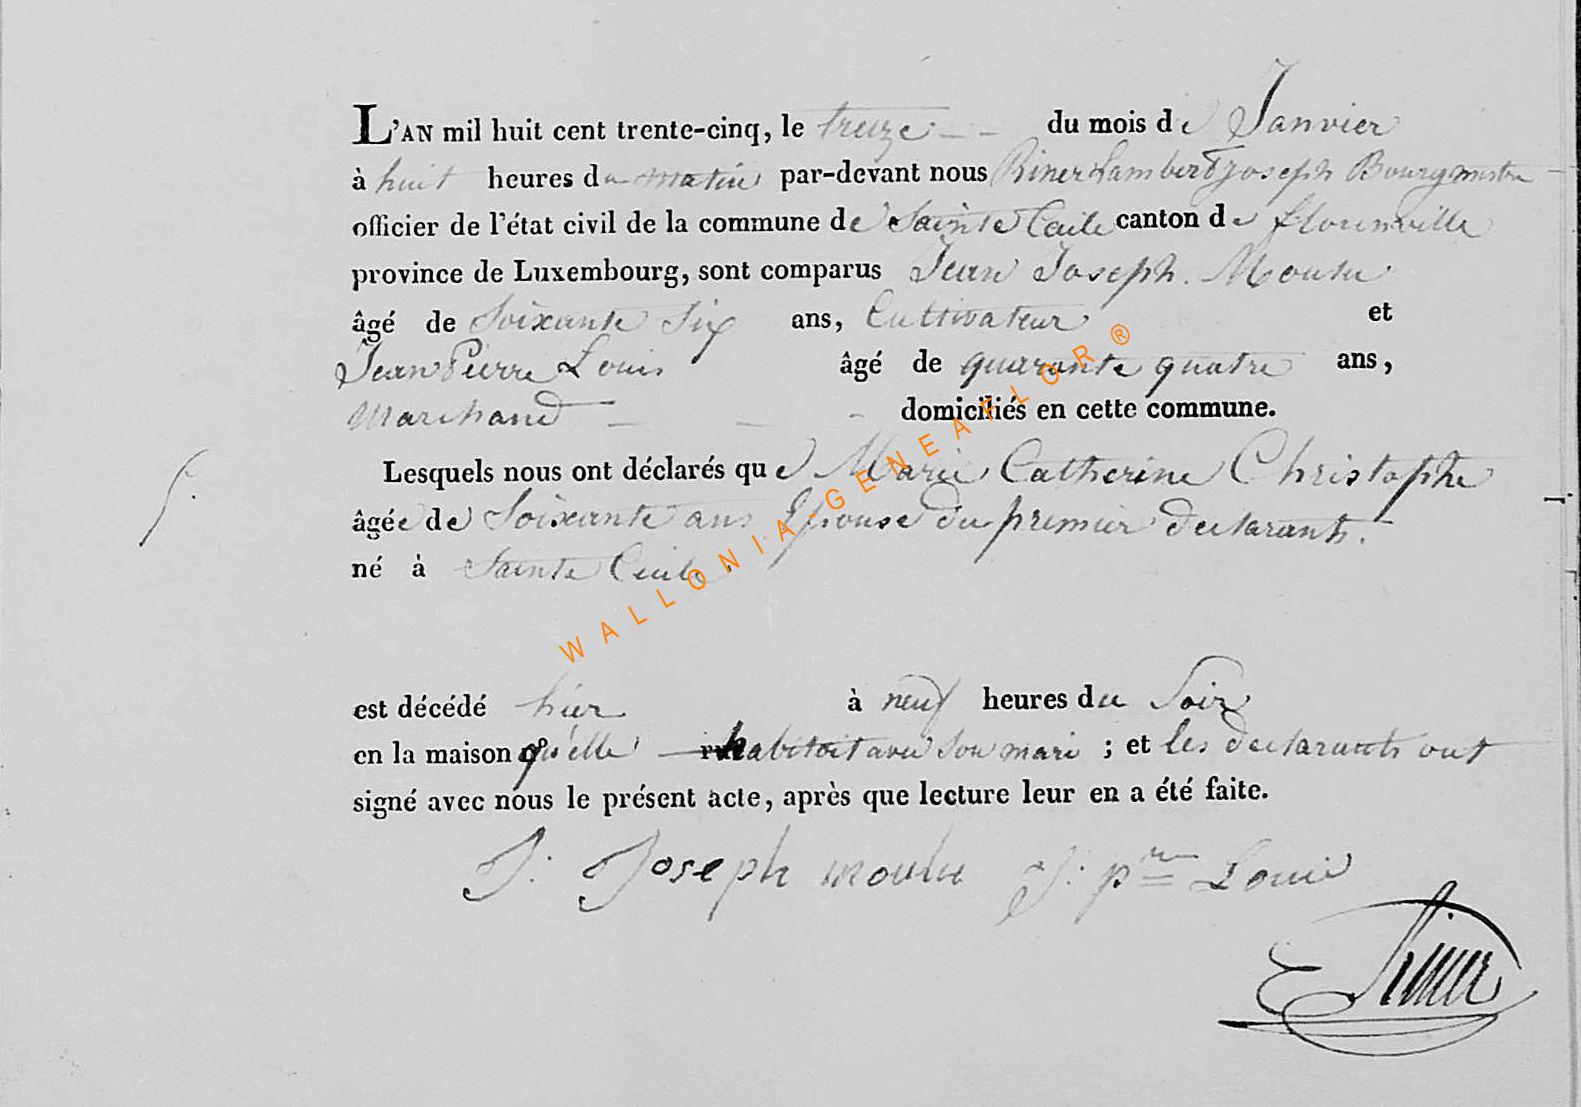 L'AN mil huit cent trente-cinq, le treize du mois de Janvier
à huit heures du matin par-devant nous Riner Lambert Joseph Bourgmestre
officier de l'état civil de la commune de Sainte Cecile canton de florenville
province de Luxembourg, sont comparus Jean Joseph Moulu
âgé de Soixante Six ans, Cultivateur et
Jean Pierre Louis âgé de quarante quatre ans,
Marchand domiciliés en cette commune.
Lesquels nous ont déclarés que Marie Catherine Christophe
5.
âgée de Soixante ans Epouse du premier declarants.
né à Sainte Cecile
est décédé hier à neuf heures du Soir
en la maison qu'elle habitoit avec Son mari ; et les declarants ont
signé avec nous le présent acte, après que lecture leur en a été faite.
J. Joseph moulu J. prre Louis
Riner
WALLONIA-GENEAFLOR ®